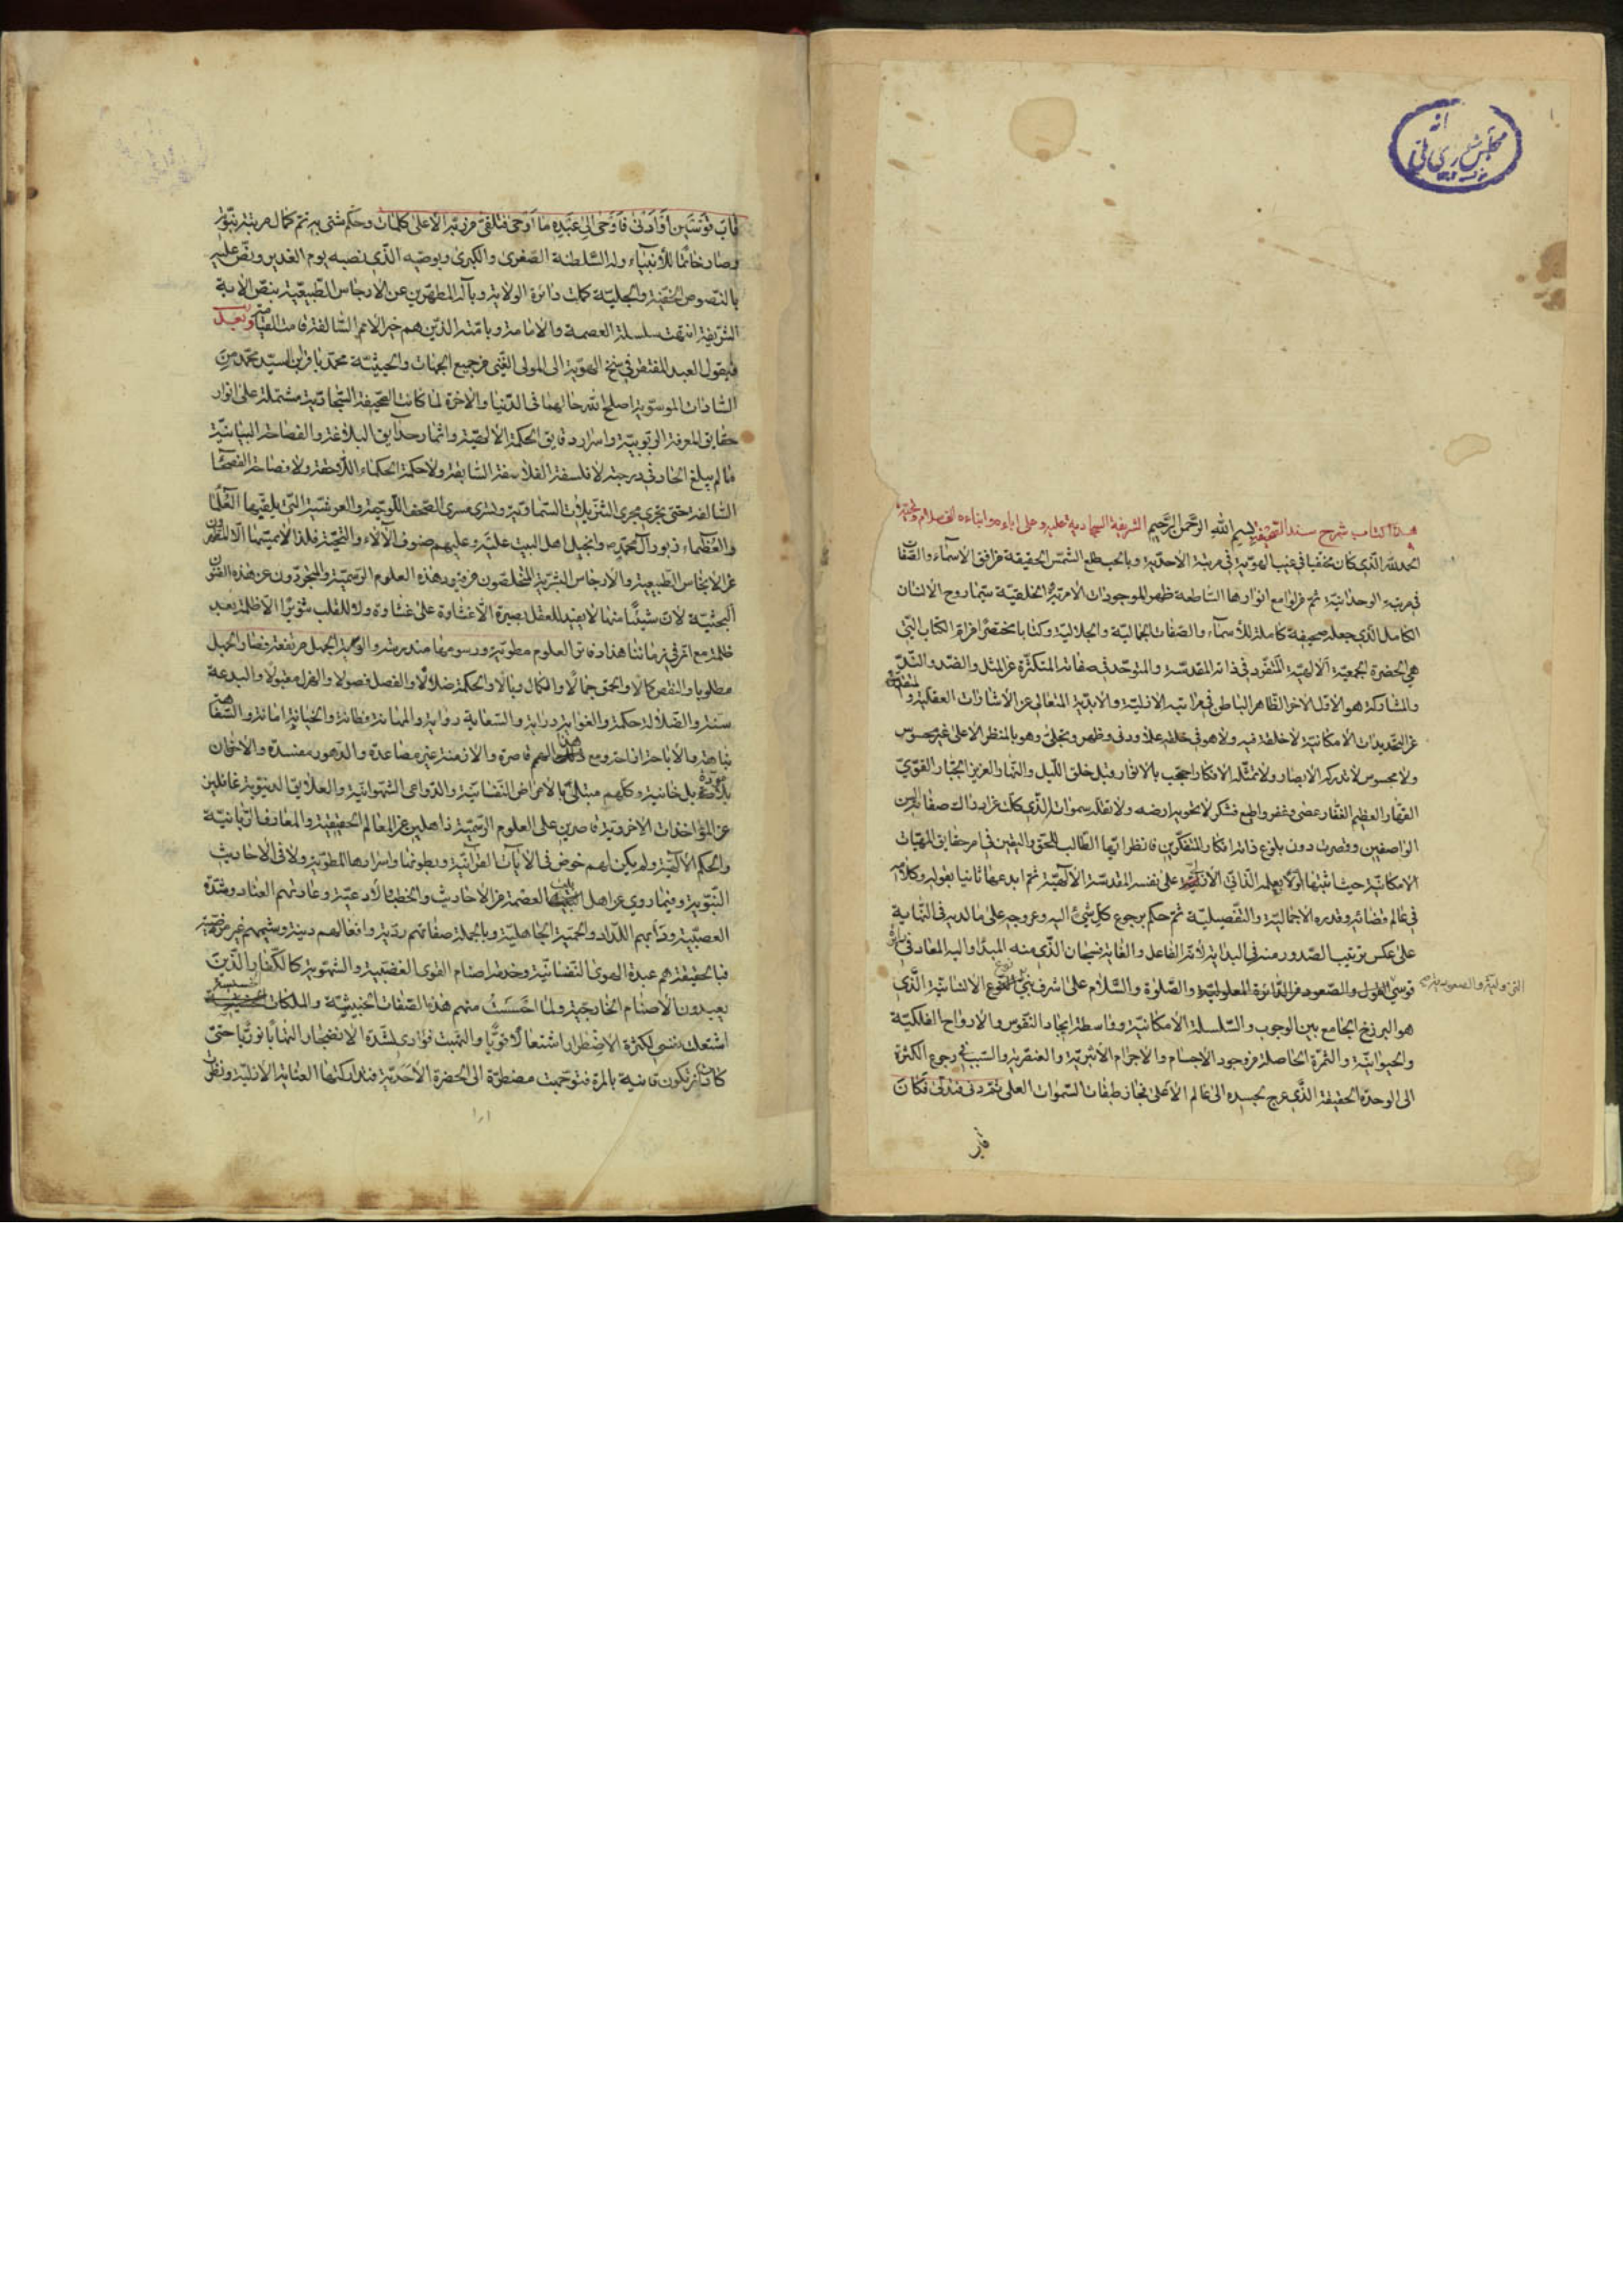 هذا كتاب شرح سند الصحيفة بسم الله الرحمن الرحيم الشريفة السجادية عليه وعلى اباءه وابناءه الف سلام وتحية
الحمد لله الذي كان مختفيا في غيب الهوية في مرتبة الاحدية وبالحب طلع الشمس الحقيقة من افق الاسماء والصفات
في مرتبة الوحدانية ثم من لوامع انوارها الساطعة ظهر الموجودات الامرية والخلقية سيما روح الانسان
الكامل الذي جعله صحيفة كاملة للأسماء والصفات الجمالية والجلالية وكتابا مختصرا من ام الكتاب التي
هي الحضرة الجمعية الالهية المتفرد في ذاته المقدسة والمتوحد في صفاته المتكثرة عن المثل والضد والند
والمشاركة هو الاول الاخر الظاهر الباطن في مراتبه الازلية والابدية المتعالي عن الاشارات العقلية و
عن التحديدات الامكانية لا خلقه فيه ولا هو في خلقه علا ودنى وظهر وتجلى وهو بالمنظر الاعلى غير محسوس
ولا مجسوس لا تدركه الابصار ولا تمثله الافكار احتجب بالانوار وقبل خلق الليل والنهار العزيز الجبار القوي
القهار العظيم الغفار عصي وغفر واطيع فشكر لا تحويه ارضه ولا تقله سمواته الذي كلت عن ادراك صفاته السن
الواصفين وقصرت دون بلوغ ذاته افكار المتفكرين فانظر ايها الطالب للحق واليقين في امر حقايق المهيات
الامكانية حيث اثبتها اولا بعلمه الذاتي الازلي على نفسه المقدسة الآلهية ثم ابدعها ثانيا بقوله وكلامه
في عالم قضائه وقدره الاجمالية والتفصيلية ثم حكم برجوع كل شئ اليه وعروجه على ما لديه في النهاية
على عكس ترتيب الصدور منه في البداية لانه الفاعل والغاية فسبحان الذي منه المبدأ واليه المعاد في دائرة
قوسي النزول والصعود من الدائرة المعلولية والصلوة والسلام على اشرف نوع الانسانية الذي
النزولية والصعودية
هو البرزخ الجامع بين الوجوب والسلسلة الامكانية وواسطة ايجاد النفوس والارواح الفلكية
والحيوانية والثمرة الحاصلة من وجود الاجسام والاجرام الاثيرية والعنصرية والسبب في رجوع الكثرة
الى الوحدة الحقيقة الذي عرج بجسده الى عالم الاعلى فجاز طبقات السموات العلى ثم دنى فتدلى فكان
قاب
قاب قوسين أو أدنى فأوحى إلى عبده ما أوحى فتلقى من ربه الأعلى كلمات وحكم شتى به تم كمال مرتبة نبوته
وصار خاتما للأنبياء وله السلطنة الصغرى والكبرى وبوصيه الذي نصبه يوم الغدير ونص عليه
بالنصوص الخفية والجلية كملت دائرة الولاية وبآله المطهرين عن الارجاس الطبيعية بنص الاية
الشريفة انتهت سلسلة العصمة والامامة وبامته الذين هم خير الامم السالفة قامت القيامة وبعد
فيقول العبد المفتقر في سنخ الهوية الى المولى الغني من جميع الجهات والحيثية محمد باقر بن السيد محمد من
السادات الموسوية اصلح الله حالهما في الدنيا والآخرة لما كانت الصحيفة السجادية مشتملة على انوار
حقايق المعرفة الربوبية واسرار دقايق الحكمة الالهية واثمار حدايق البلاغة والفصاحة البيانية
ما لم يبلغ احد في درجته لا فلسفة الفلاسفة السابقة ولا حكمة الحكماء اللاحقة ولا فصاحة الفصحاء
السالفة حتى تجري مجرى التنزيلات السماوية وتسري مسرى الصحف اللوحية والعرشية التي يلقبها العلماء
والعظماء زبور آل محمد ص وانجيل اهل البيت عليه وعليهم صنوف الآلاء والتحية فلذا لا يمسها الا المطهرون
عن الانجاس الطبيعية والارجاس البشرية المتخلصون من قيود هذه العلوم الرسمية والمجردون عن هذه الفنون
البحثية لان شيئا منها لا يفيد للعقل بصيرة الا غشاوة على غشاوة ولا للقلب تنويرا الا ظلمة بعد
ظلمة مع انه في زماننا هذا دفاتر العلوم مطوية ورسومها مندرسة والوية الجهل مرتفعة فصار الجهل
مطلوبا والنقص كمالا والحمق جمالا والكمال وبالا والحكمة ضلالا والفضل فضولا والهزل مقبولا والبدعة
سنة والضلالة حكمة والغواية دراية والسعاية رواية والمهانة فطانة والخيانة امانة والسفاهة
نباهة والاباحة اناخة ومع هذا الهمم قاصرة والازمنة غير مساعدة والدهور مفسدة والاخوان
بل خائنة وكلهم مبتلى بالامراض النفسانية والدواعي الشهوانية والعلايق الدنيوية غافلين
عن المؤاخذات الاخروية قاصرين على العلوم الرسمية ذاهلين عن المعالم الحقيقية والمعارف الربانية
والحكم الآلهية ولم يكن لهم خوض في الآيات القرآنية وبطونها واسرارها المطوية ولا في الاحاديث
النبوية وفيما روي عن اهل بيت العصمة من الاحاديث والخطب والادعية وعادتهم العناد وشدة
العصبية ودأبهم اللداد والحمية الجاهلية وبالجملة صفاتهم ردية وافعالهم دنية وشيمهم غير مرضية
فبالحقيقة هم عبدة الهوى النفسانية وخدمة اصنام القوى الغضبية والشهوية كالكفار الذين
يعبدون الاصنام الخارجية ولما احسست منهم هذه الصفات الخبيثة والملكات الخسيسة
اشتعلت نفسي لكثرة الاضطرار اشتعالا قويا والتهبت فؤادي لشدة الانضجار التهابا نوريا حتى
كادت ان تكون فانية بالمرة فتوجهت مضطرة الى الحضرة الأحدية فتداركتها العناية الازلية ونظرت